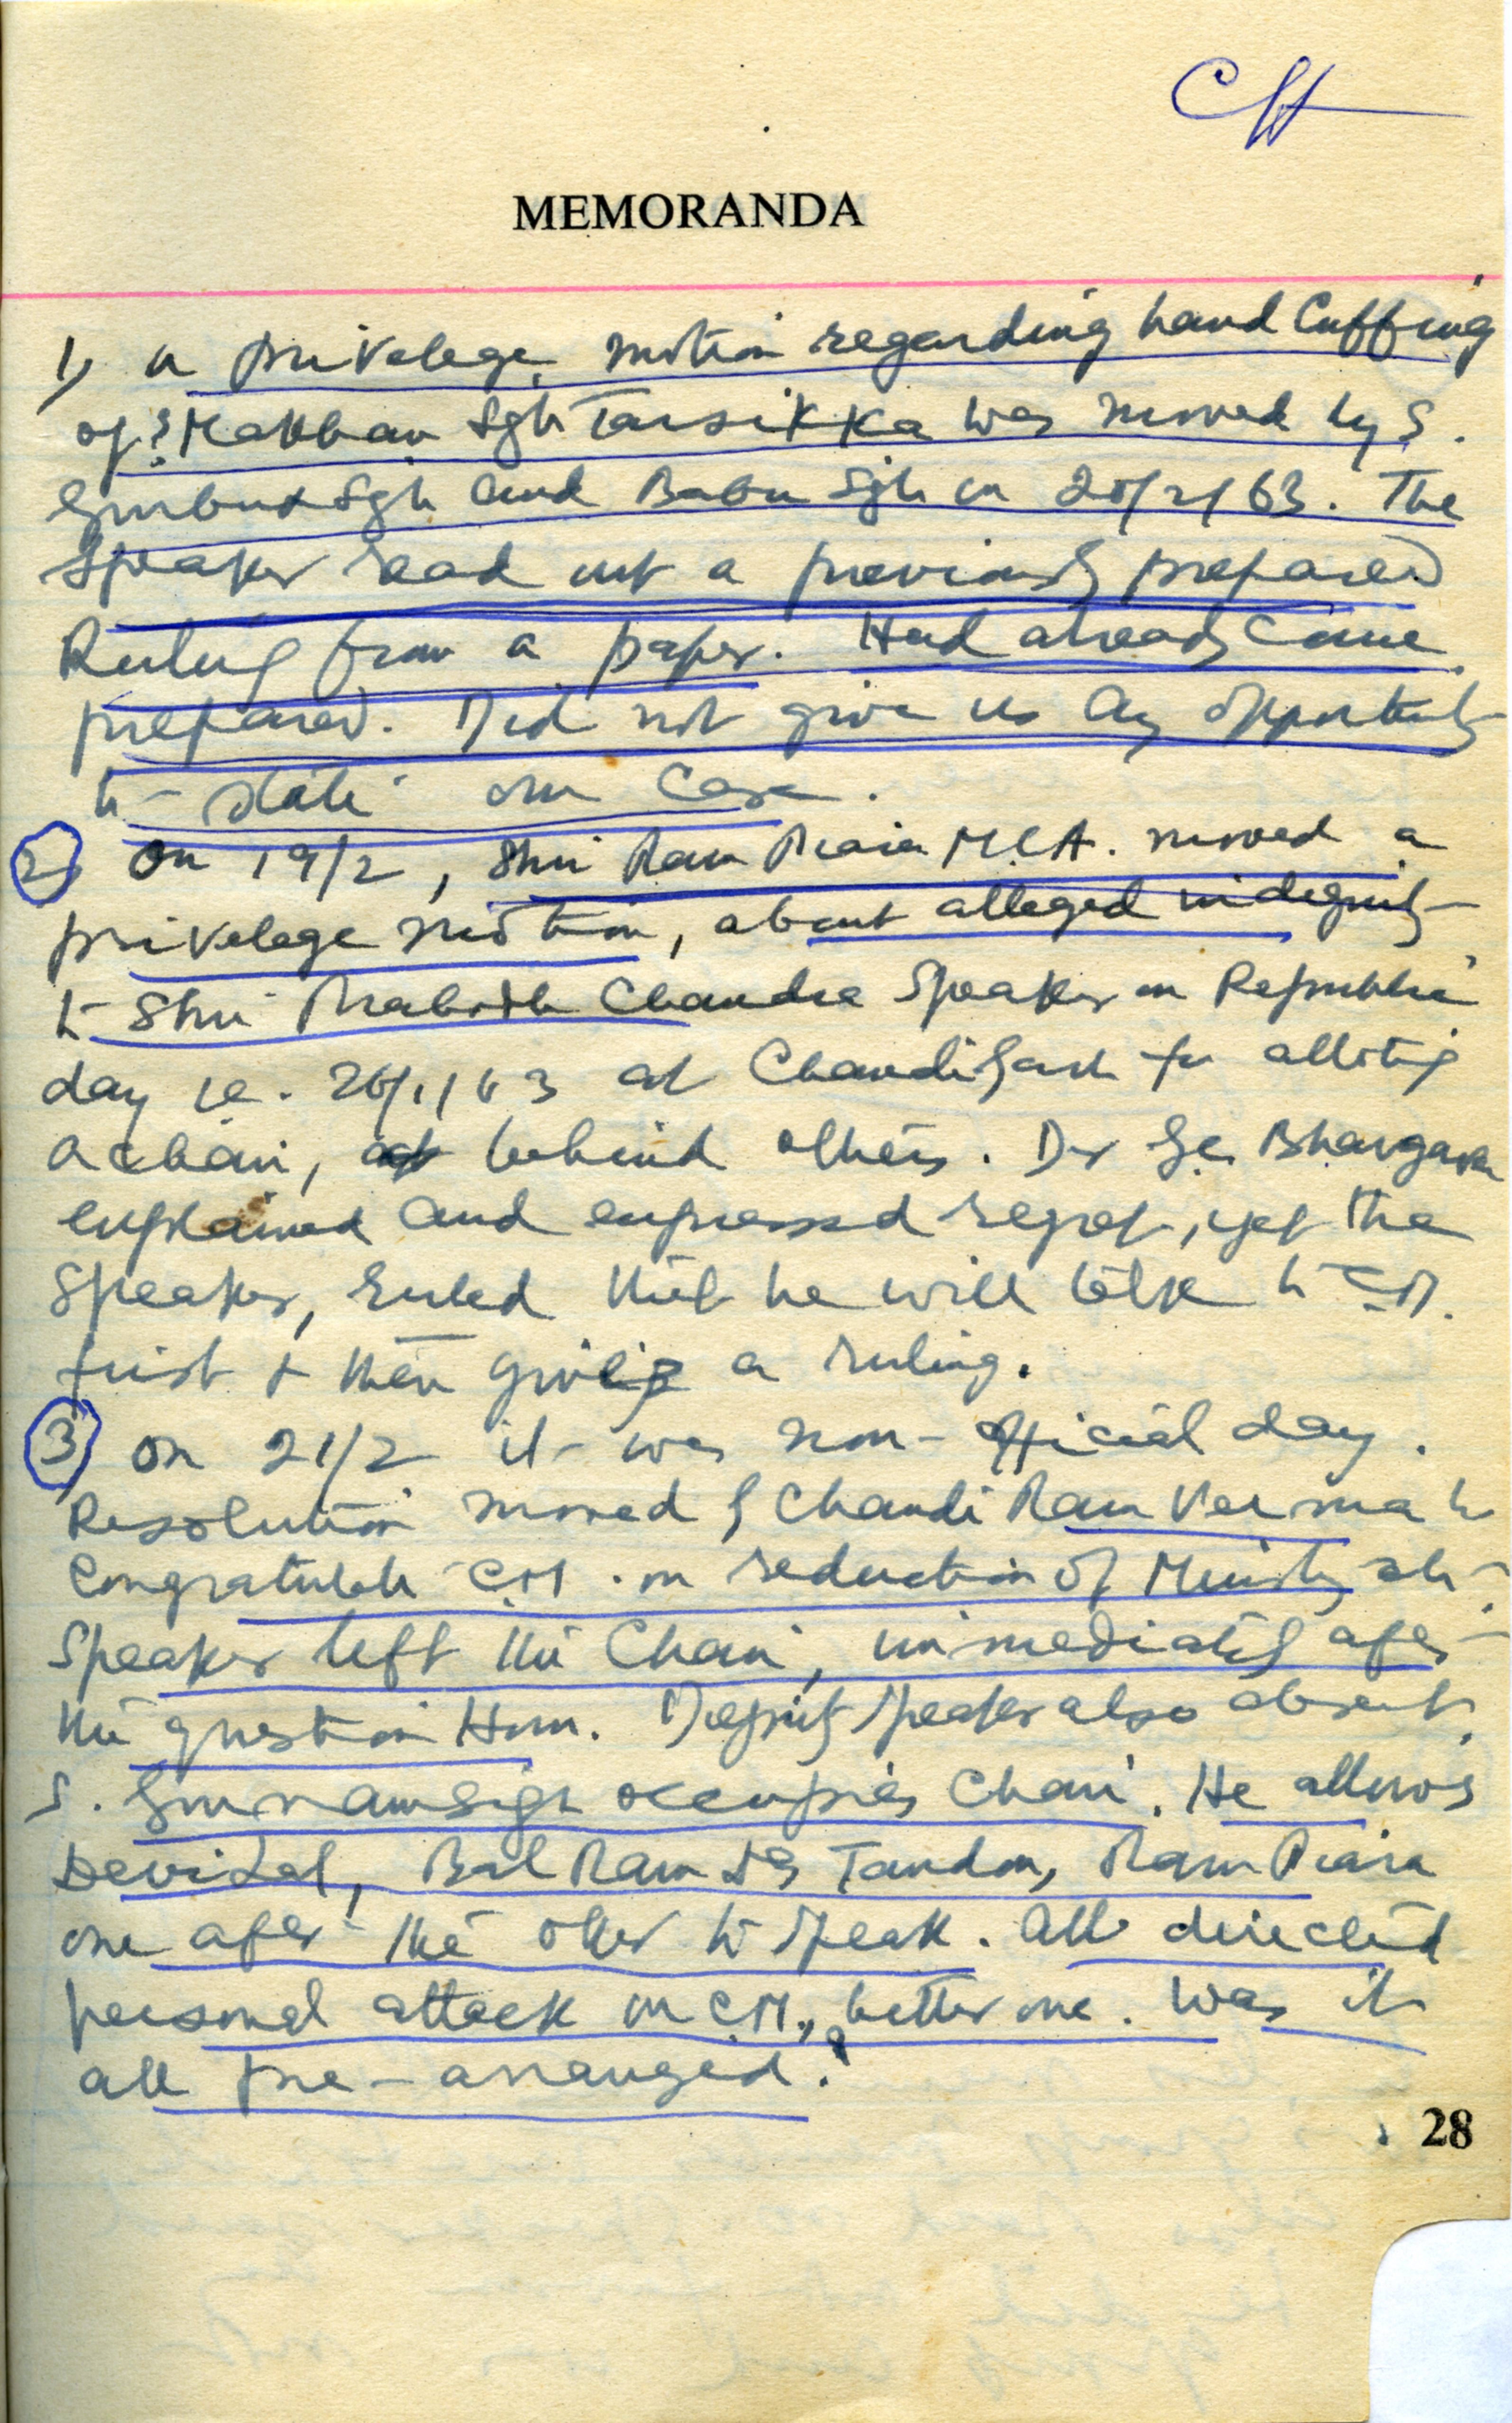 MEMORANDA
1) a privelege motion regarding hand Cuffing
of S. Makhan Sgh Tarsikka was moved by S.
Gurbux Sgh and Babu Sgh on 20/2/63. The
Speaker read out a previously prepared
Ruling from a paper. Had already come
prepared. Did not give us any opportunity
to state our case.
2) On 19/2, Shri Ram Piara M.L.A. moved a
privelege motion, about alleged indignity
to Shri Prabodh Chandra Speaker on Republic
day i.e. 26/1/63 at Chandigarh for alloting
a chair, behind others. Dr Bhargava
explained and expressed regret, yet the
Speaker, ruled that he will talk to C.M.
first & then give a ruling.
3) On 21/2 it was non-official day.
Resolution moved by Chandi Ram Verma to
Congratulate C.M. on reduction of Ministry etc.
Speaker left the Chair, immediately after
the question Hour. Deputy Speaker also absent.
S. Gurnam Sigh occupies Chair. He allows
Devi Lal, Bal Ram Ds Tandon, Ram Piara
one after the other to speak. All directed
personal attack on C.M., better one. Was it
all pre-arranged?
28